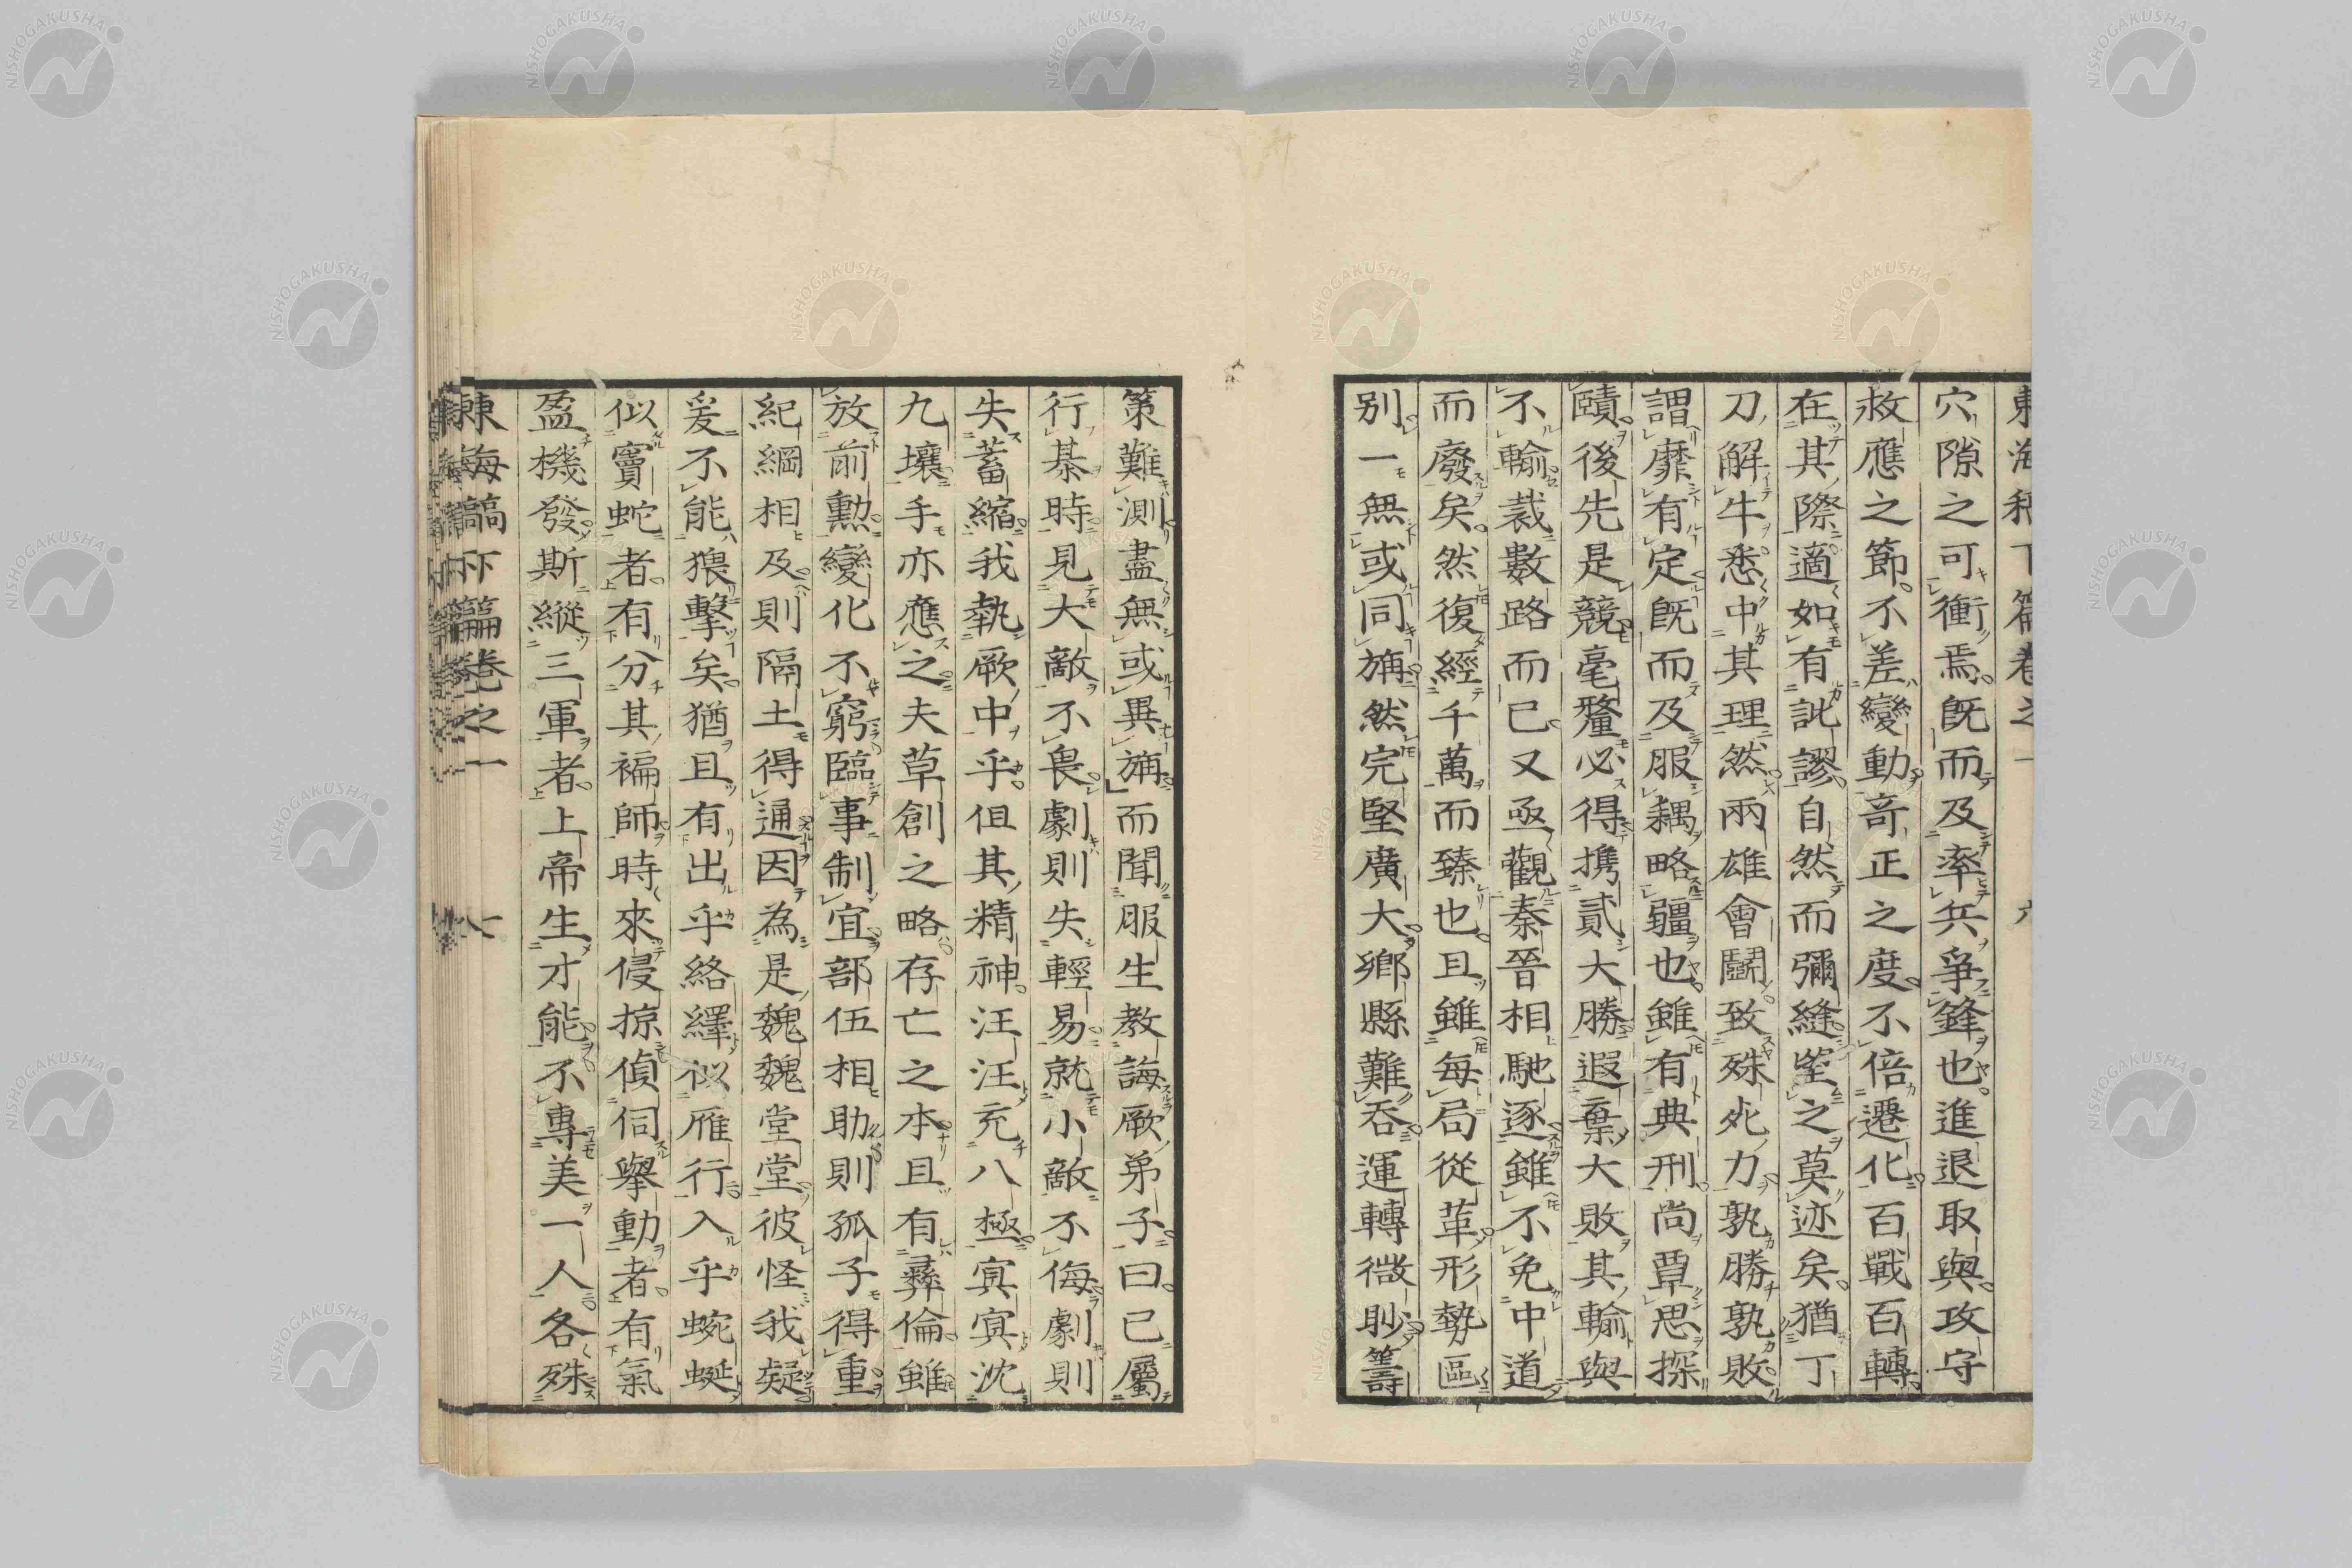 穴隙之可衝焉既而及率兵爭鋒也進退取與攻守
救應之節不差變動奇正之度不倍遷化百戰百轉
在其際適如有訛謬自然而彌縫望之莫迹矣猶丁
刀解牛悉中其理然兩雄會鬪致殊死力孰勝孰敗
謂靡有定既而及服耦略疆也雖有典刑尚覃思探
賾後先是競毫釐必得携貳大勝遐棄大敗其輸與
不輸裁數路而已又亟觀秦晉相馳逐雖不免中道
而廢矣然復經千萬而臻也且雖每局從革形勢區
別一無或同旃然完堅廣大鄉縣難吞運轉微眇籌
策難測盡無或異旃而聞服生教誨厥弟子曰已屬
行棊時見大敵不畏劇則失輕易就小敵不侮劇則
失蓄縮我執厥中乎但其精神汪汪充八極寘寘沈
九壤手亦應之夫草創之略存亡之本且有彝倫雖
放前勳變化不窮臨事制宜部伍相助則孤子得重
紀綱相及則隔土得通因為是魏魏堂堂彼怪我疑
爰不能猥擊矣猶且有出乎絡繹似雁行入乎蜿蜒
似竇蛇者有分其褊師時來侵掠偵伺舉動者有氣
盈機發斯縱三軍者上帝生才能不專美一人各殊
東海稿下篇卷之一 八
NISHOGAKUSHA